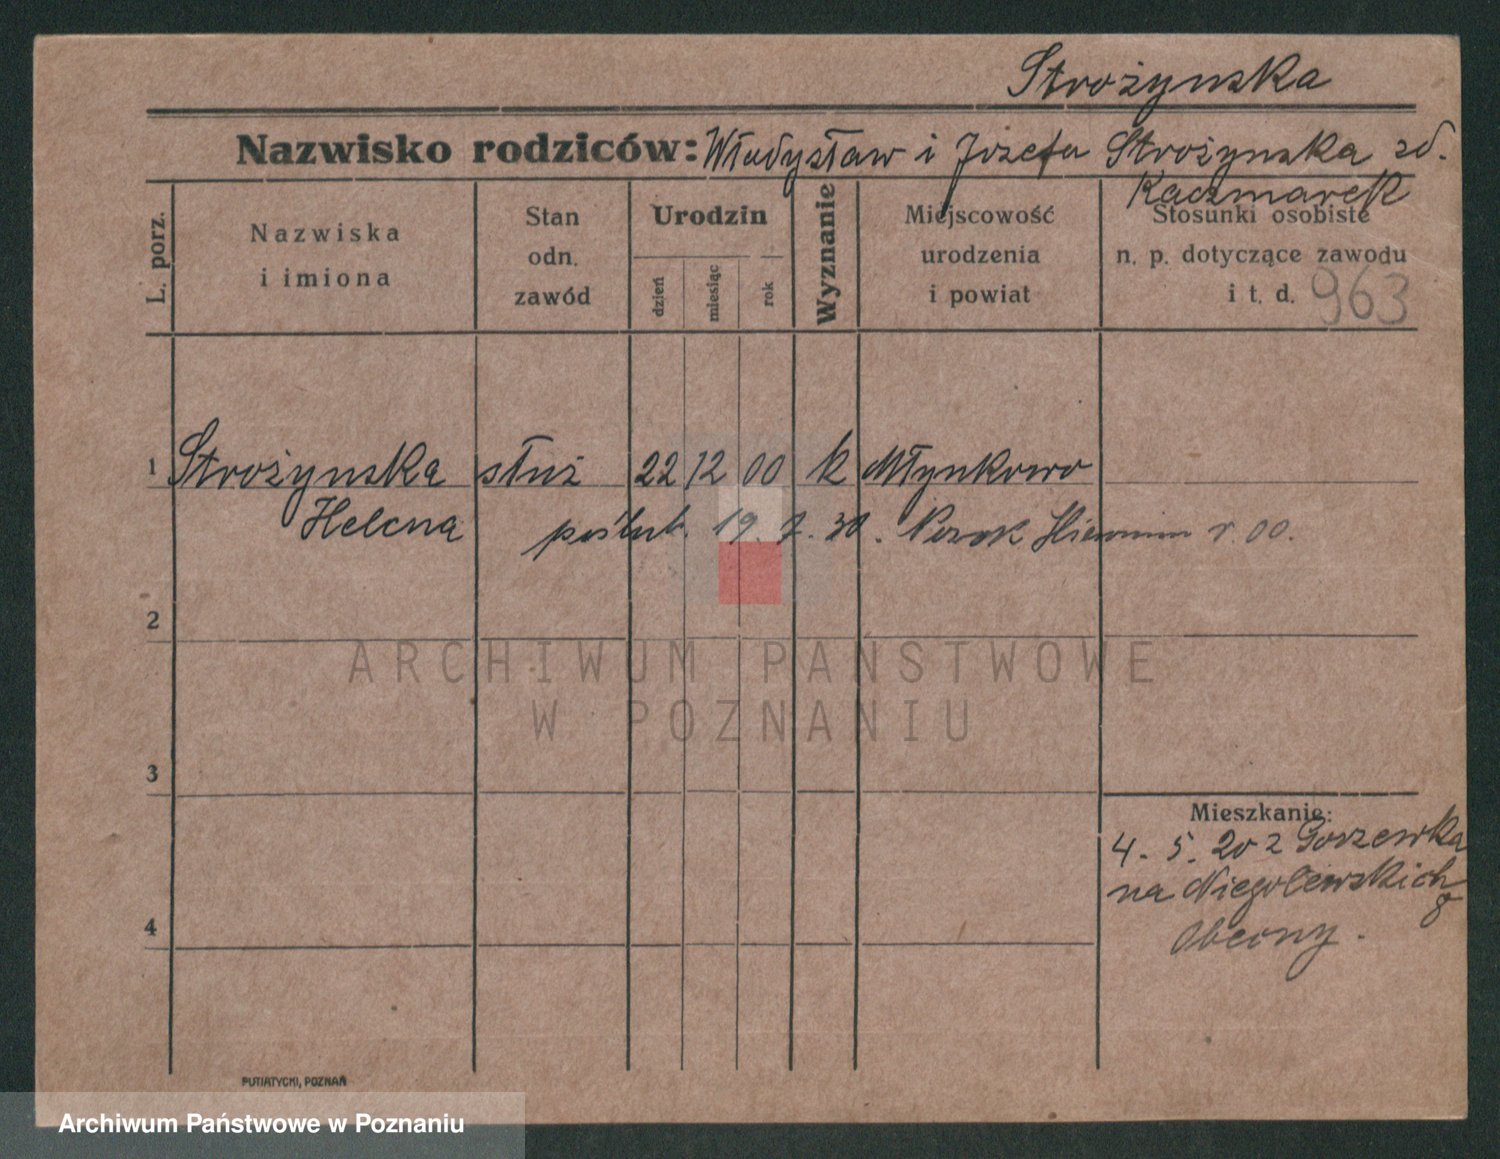 Strożynska
Nazwisko rodziców: Władysław i Józefa Strożynska zd.
Kaczmarek
L. porz.
Nazwiska
i imiona
Stan
odn.
zawód
Urodzin
dzień
miesiąc
rok
Wyznanie
Miejscowość
urodzenia
i powiat
Stosunki osobiste
n. p. dotyczące zawodu
i t. d. 963
1 Strożynska służ 22 12 00 k Młynkowo
Helena poślub. 19. 7. 30. r. 00.
2
ARCHIWUM PAŃSTWOWE
W POZNANIU
3
Mieszkanie:
4. 5. 20 z Gorzewka
na Niegolewskich
8
4
Obecny.
PUTIATYCKI, POZNAŃ
Archiwum Państwowe w Poznaniu